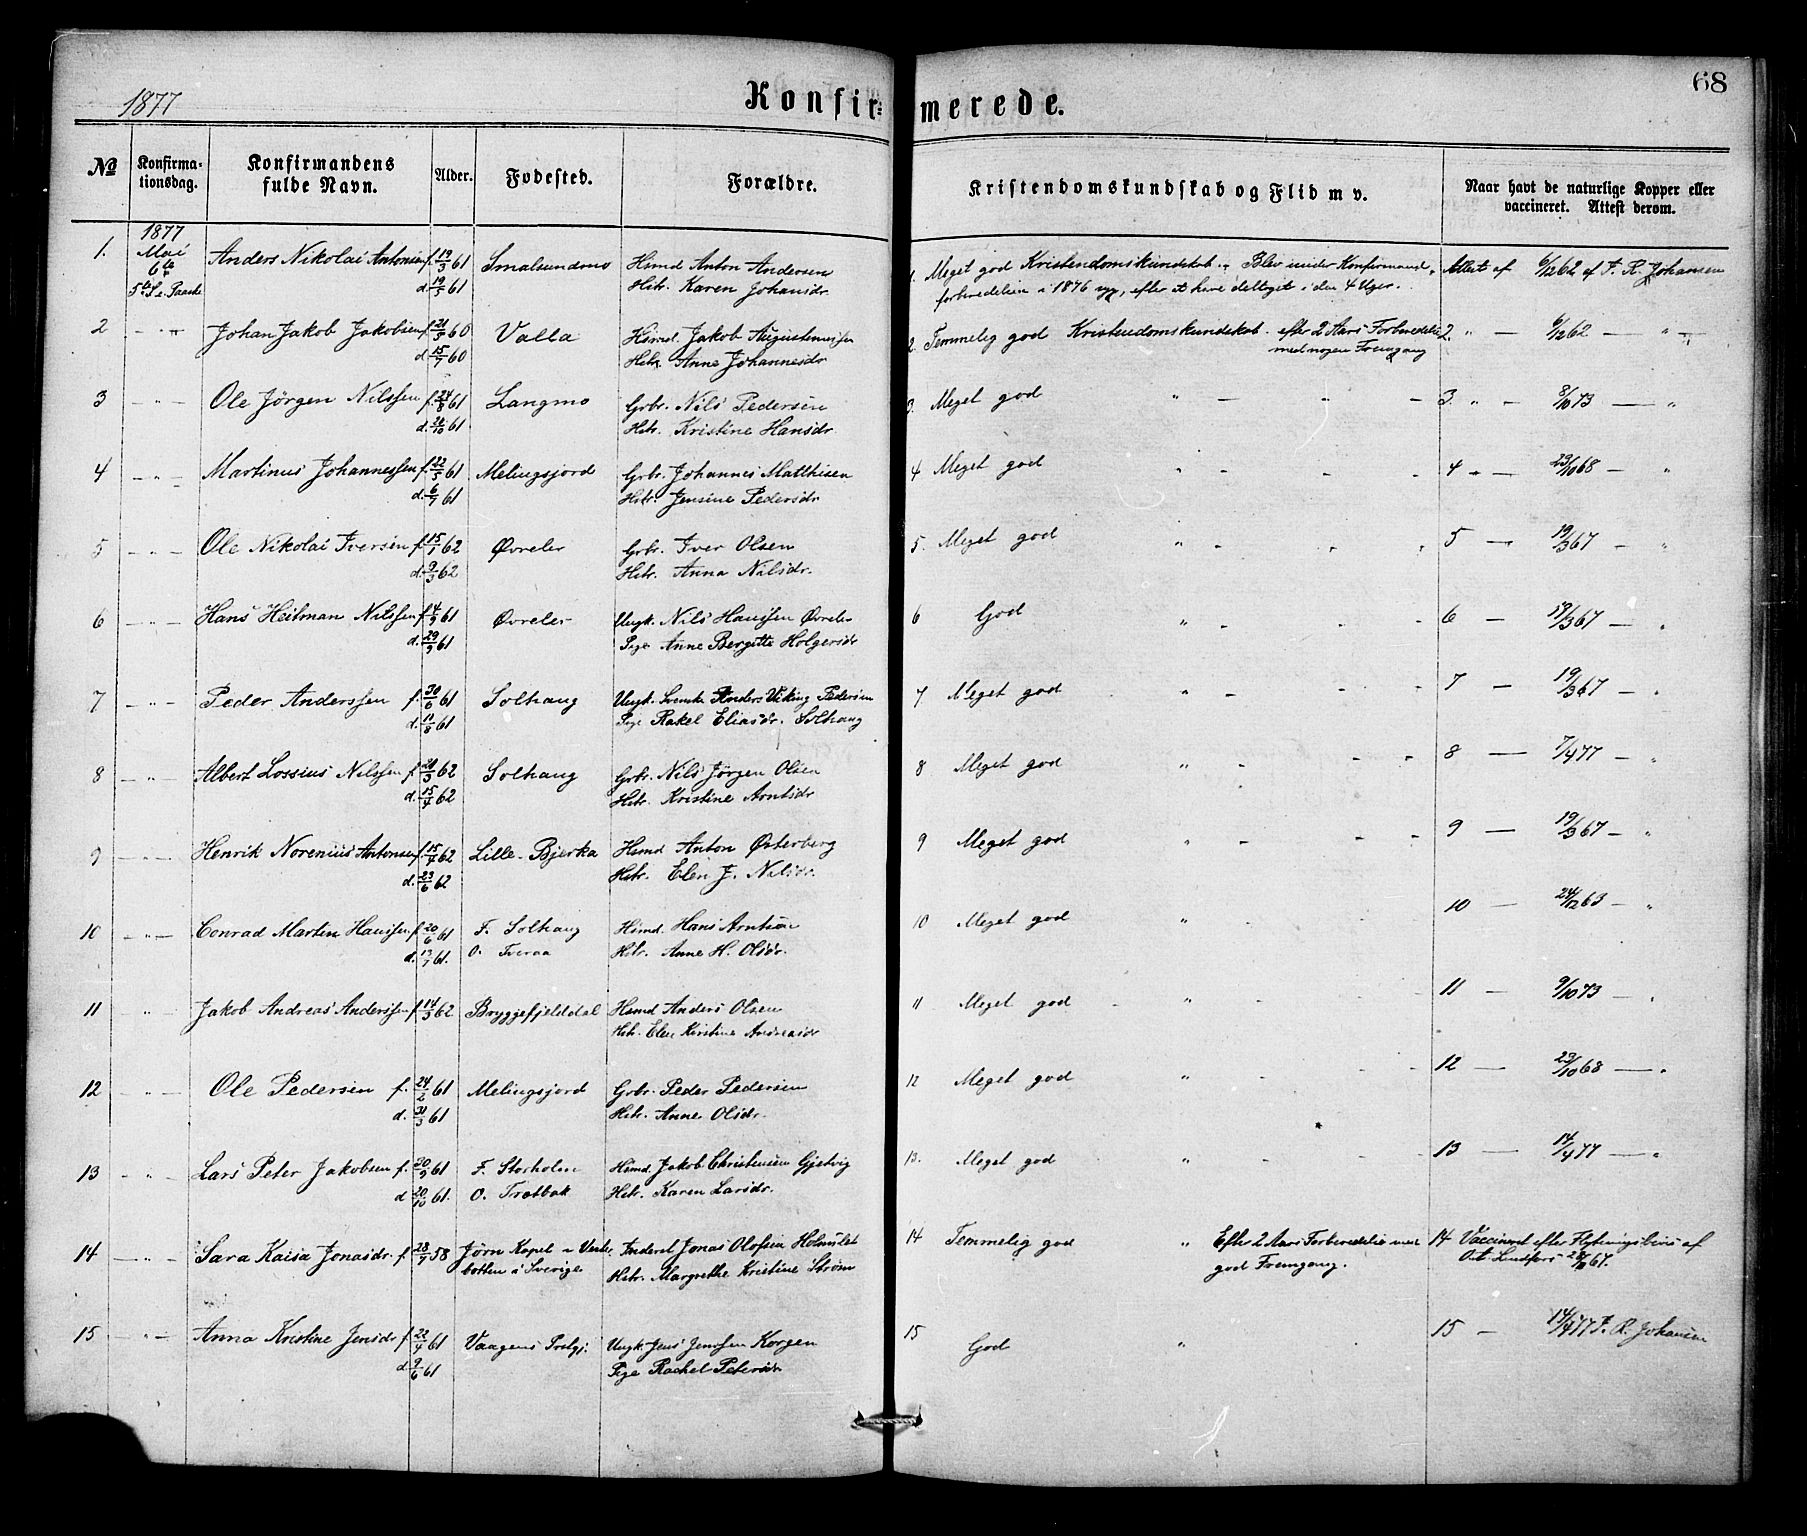 1877
Konfir=merede.
68
No
Konfirma-tionsdag.
Konfirmandens fulde Navn.
Alder.
Fødested.
Forældre.
Kristendomskundskab og Flid m v.
Naar havt de naturlige Kopper eller vaccineret. Attest derom.
1877
1. Mai 6te 5te S. e. Paaske Anders Nikolai Antonsen f. 19/3 61 Smalsundmo Hsmd Anton Andersen 1. Meget god Kristendomskundskab. Blev under Konfirmand- Attest af 6/12 62 af F. R. Johansen
d. 19/5 61 Hstr. Karen Johansdr. forberedelsen i 1876 syg, efter at have deltaget i den 4 Uger.
2 - " - Johan Jakob Jakobsen f. 21/3 60 Valla Hsmd. Jakob Augustinussen 2. Temmelig god Kristendomskundskab. efter 2 Aars Forberedelse 2. " - 6/12 62 - " -
d. 15/7 60 Hstr. Anne Johannesdr med nogen Fremgang
3 - " - Ole Jörgen Nilssen f. 24/8 61 Langmo Grbr. Nils Pedersen 3. Meget god " - " - 3. " - 8/10 73 - "
d. 20/10 61 Hstr. Kristine Hansdr.
4 - " - Martinus Johannessen f. 22/5 61 Melingsjord Grbr. Johannes Matthisen 4 Meget god " - " - 4 " - 23/10 68 - "
d. 6/7 61 Hstr. Jensine Pedersdr
5 - " - Ole Nikolai Iversen f. 15/1 62 Øvreler Grbr. Iver Olsen 5. Meget god " - " 5 - 19/3 67 - "
d. 9/3 62 Hstr. Anna Nilsdr.
6 - " - Hans Heitman Nilssen f. 4/9 61 Øvreler Ungk. Nils Hanssen Øvreler 6 God " - 6 - 19/3 67 - "
d. 29/9 61 Pige Anne Bergitte Holgersdr
7 - " - Peder Anderssen f. 30/6 61 Solhaug Ungk. Svenske Anders Viking Pedersen 7 Meget god " - 7 - 19/3 67 - "
d. 11/8 61 Pige Rakel Eliasdr. Solhaug
8 - " - Albert Lossius Nilssen f. 20/3 62 Solhaug Grbr. Nils Jörgen Olsen 8 Meget god " - 8 - 7/4 77 - "
d. 15/4 62 Hstr. Kristine Arntsdr
9 - " - Henrik Norenius Antonsen f. 15/4 62 Lille-Bjerka Hsmd Anton Østerberg 9 Meget god " - 9 - 19/3 67 - "
d. 23/6 62 Hstr. Elen J. Nilsdr.
10 - " - Conrad Martin Hanssen f. 20/6 61 F. Solhaug Hsmd. Hans Arntsen 10 Meget god " 10 - 24/12 63 - "
d. 13/7 61. O. Tveraa Hstr. Anne H. Olsdr.
11 - " - Jakob Andreas Anderssen f. 14/3 62 Bryggefjelddal Hsmd Anders Olsen 11 Meget god " 11 - 9/10 73 - "
Hstr. Elen Kirstine Andreasdr
12 - " - Ole Pedersen f. 24/2 61 Melingsjord Grbr. Peder Pedersen 12 Meget god " 12 - 23/10 68 - "
d. 31/3 61 Hstr. Anne Olsdr.
13 - " - Lars Peter Jakobsen f. 20/9 61 F. Storholm Hsmd. Jakob Christensen Gjestvig 13. Meget god " 13 - 14/4 77 - "
d 20/10 61. O. Trætbak Hstr. Karen Larsdr.
14 - " - Sara Kaisa Jonasdr. f. 28/7 58 Jørn Kapel i Vester- Inderst Jonas Olofsen Holmslet 14 Temmelig god " Efter 2 Aars Forberedelse med 14 Vaccineret efter Flytningsbevis af
botten i Sverige Hstr. Margrethe Kristine Strøm god Fremgang. Ost. Lindfors 67.
15 - " - Anna Kristine Jensdr f. 22/4 61 Vaagens Prstgj. Ungk. Jens Jenssen Korgen 15 God " 15 - 14/4 77 F. R. Johansen
d. 9/6 61 Pige Rachel Petersdr